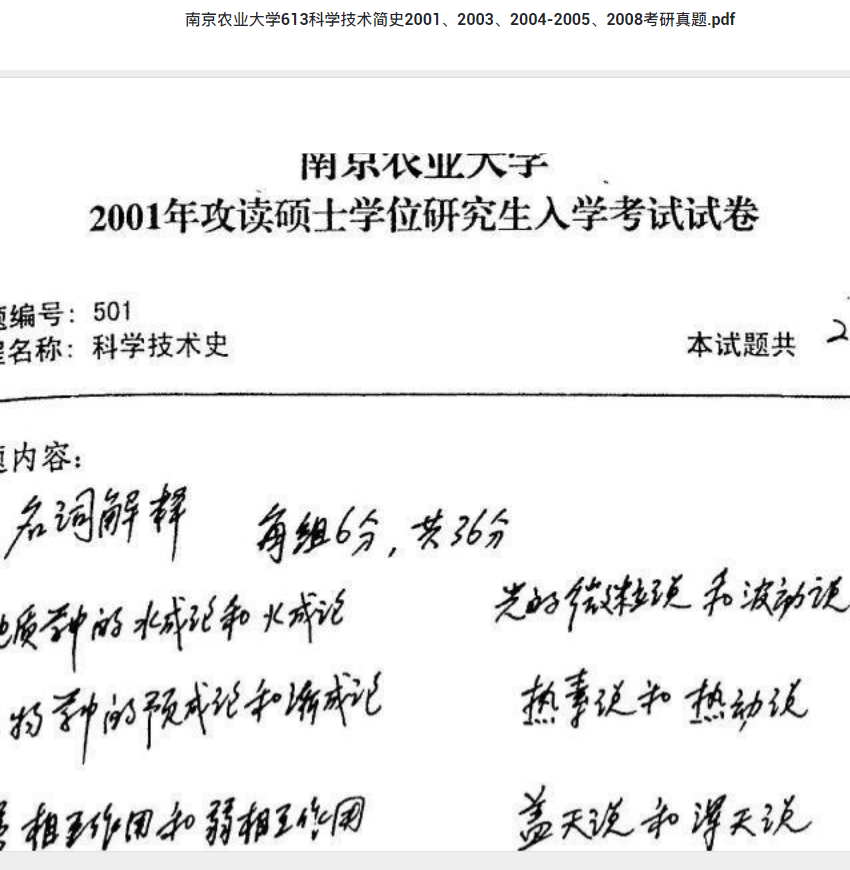 南京农业大学613科学技术简史2001、2003、2004-2005、2008考研真题.pdf
南京农业大学
2001年攻读硕士学位研究生入学考试试卷
题编号：501
程名称：科学技术史 本试题共 2
题内容：
名词解释 每组6分，共36分
地质学中的水成论和火成论 光的微粒说和波动说
物学中的预成论和渐成论 热素说和热动说
相互作用和弱相互作用 盖天说和浑天说